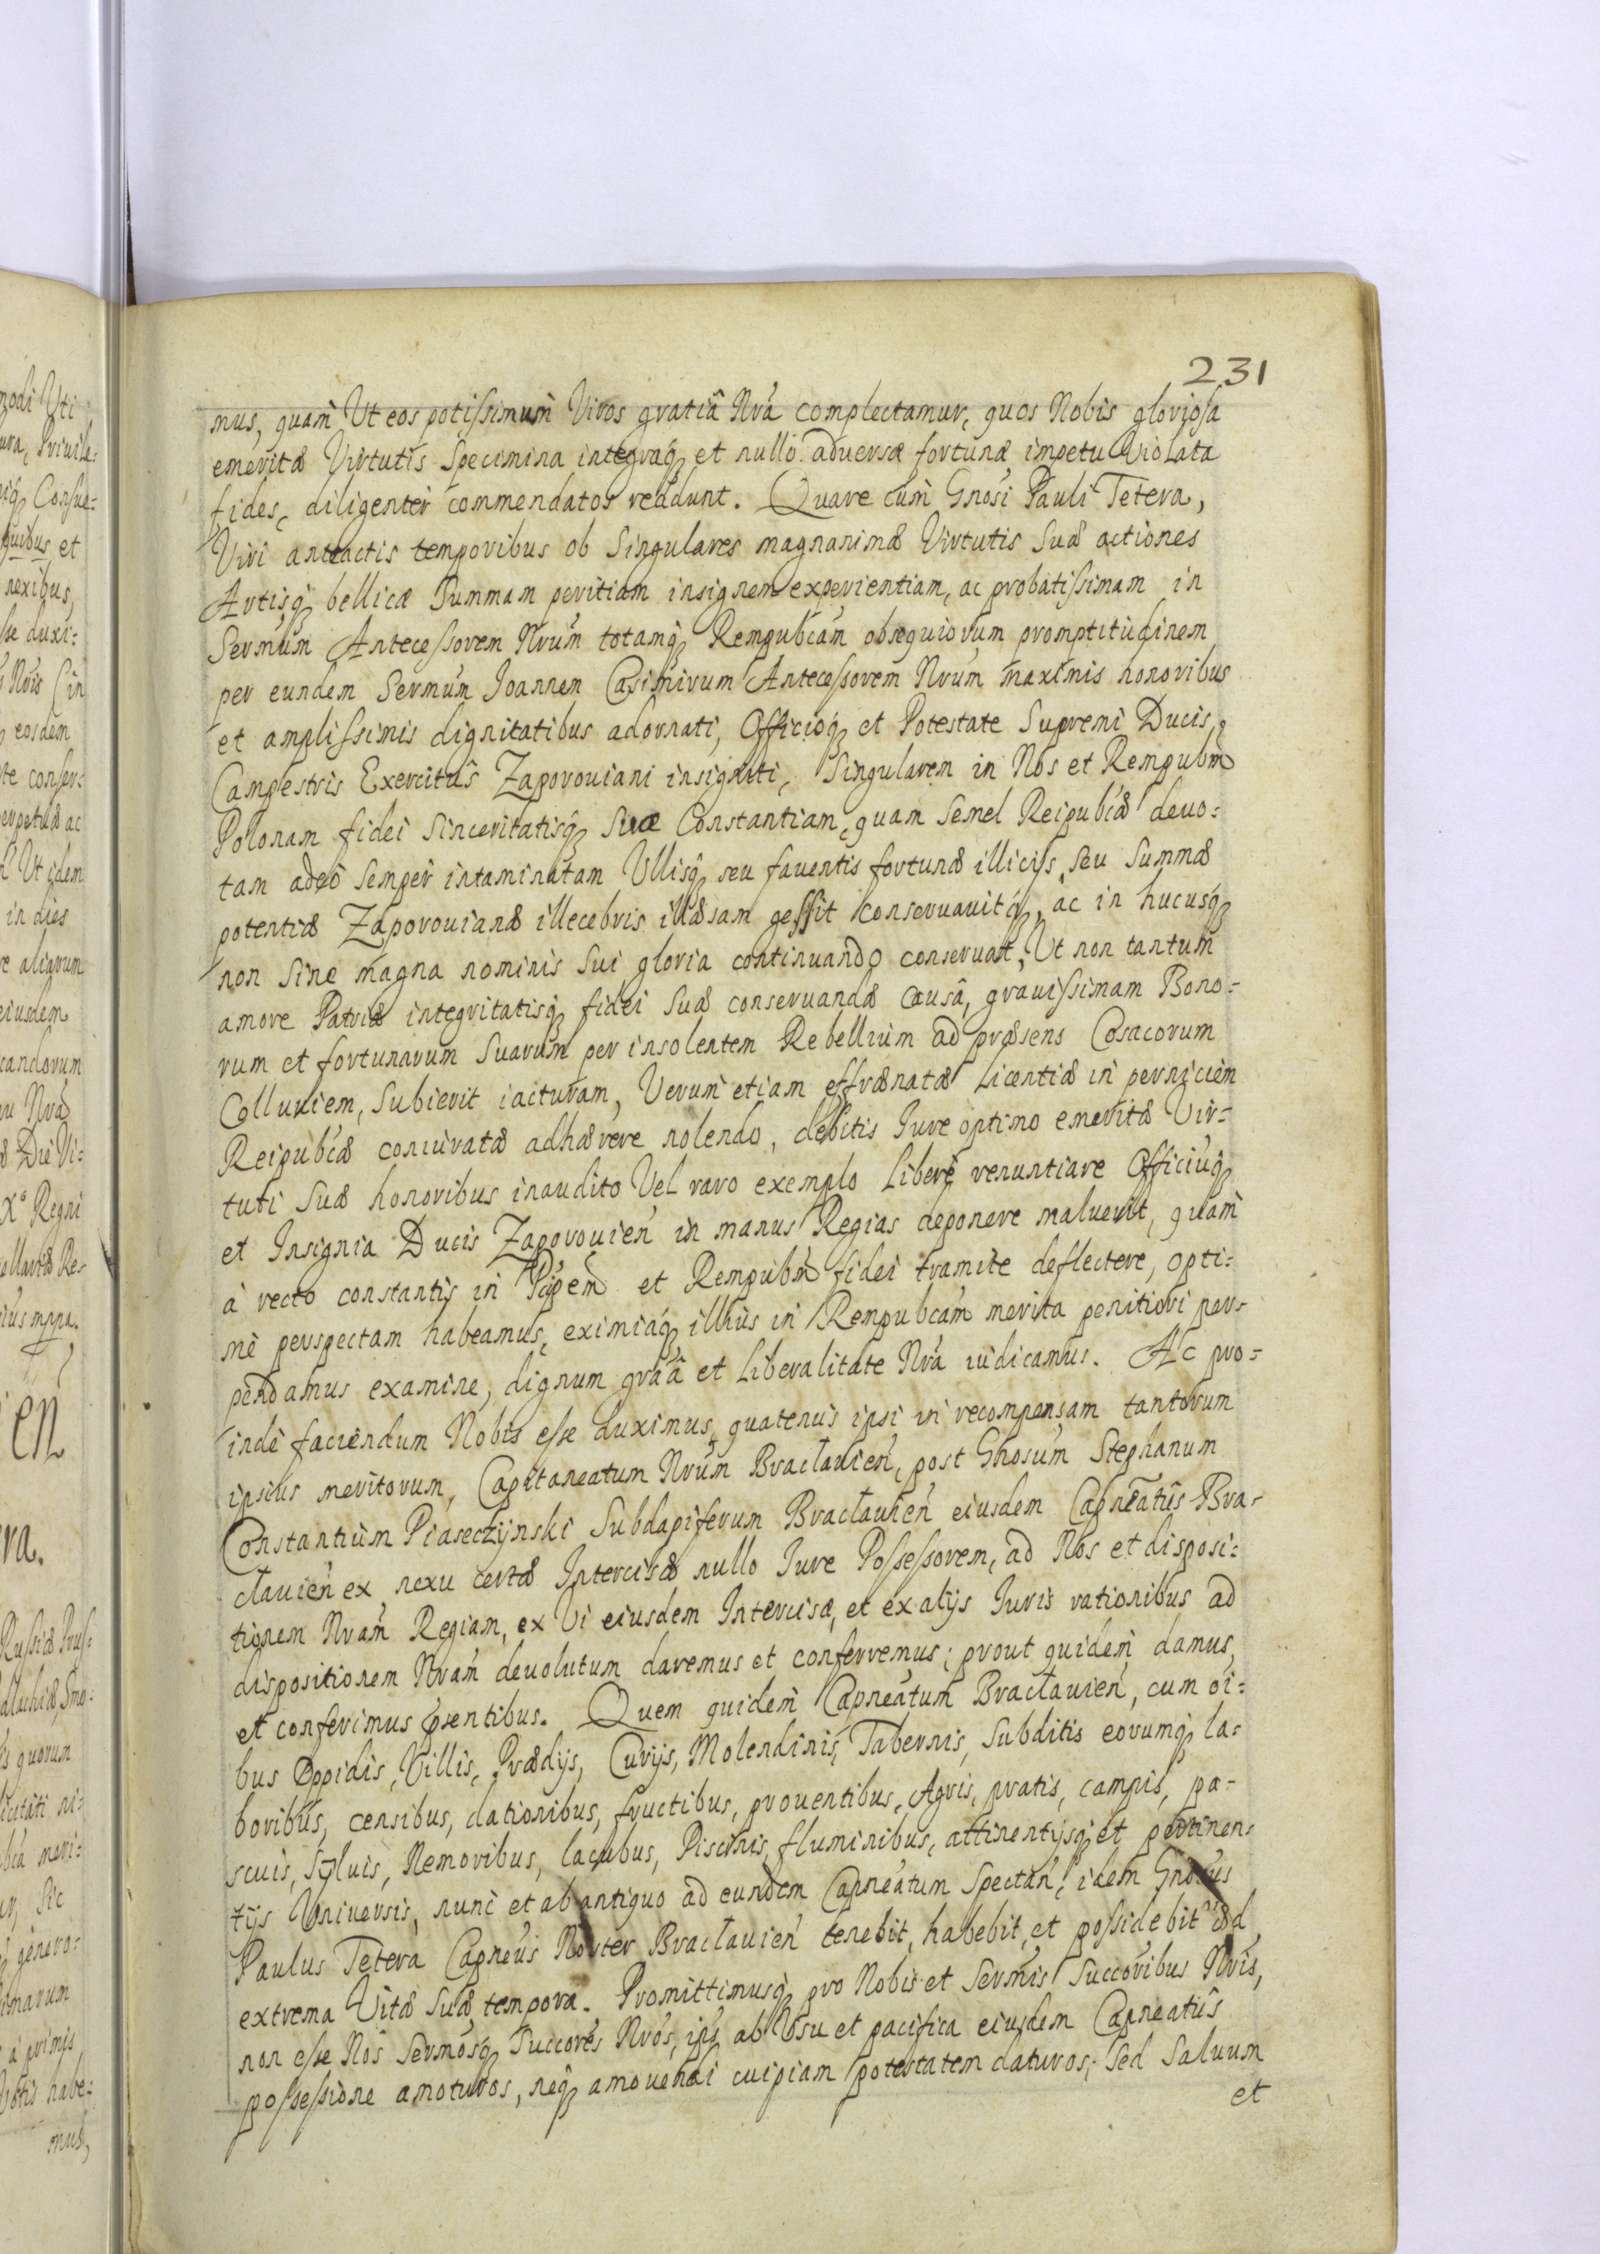 231
mus, quam Ut eos potissimum Viros gratiâ Nrâ complectamur, quos Nobis gloriosa
emeritæ Virtutis Specimina integraq́ et nullo aduersæ fortunæ impetu Violata
fides, diligenter commendatos reddunt. Quare cum Gnosi Pauli Tetera,
Viri anteactis temporibus ob Singulares magnanimæ Virtutis Suæ actiones
Artisq́ bellicæ Summam peritiam insignem experientiam, ac probatissimam in
Sermum Antecessorem Nrum totamq́ Rempubcam obsequiorum promptitudinem
per eundem Sermum Joannem Casimirum Antecessorem Nrum maximis honoribus
et amplissimis dignitatibus adornati, Officioq́ et Potestate Supremi Ducis,
Campestris Exercitus Zaporouiani insigniti, Singularem in Nos et Rempubm
Polonam fidei Sinceritatisq́ Suæ Constantiam, quam Semel Reipubcæ deuo-
tam adeo Semper intaminatam Ullisq́ seu fauentis fortunæ illicijs, seu Summæ
potentiæ Zaporouianæ illecebris illæsam gessit conseruauitq́, ac in hucusq́
non Sine magna nominis Sui gloria continuando conseruat, Ut non tantum
amore Patriæ integritatisq́ fidei Suæ conseruandæ causâ, grauissimam Bono-
rum et fortunarum Suarum per insolentem Rebellium ad præsens Cosacorum
Colluuiem, Subierit iacturam, Verum etiam effrænatæ Licentiæ in perniciem
Reipubcæ coniuratæ adhærere nolendo, debitis Jure optimo emeritæ Vir-
tuti Suæ honoribus inaudito Vel raro exemplo Liberè renuntiare Officiuq́
et Insignia Ducis Zaporouien in manus Regias deponere maluerit, quam
à recto constantis in Pcipem et Rempubm fidei tramite deflectere, opti-
mè perspectam habeamus, eximiaq́ illius in Rempubcam merita penitiori per-
pendamus examine, dignum graâ et Liberalitate Nrâ iudicamus. Ac pro-
inde faciendum Nobis esse duximus, quatenus ipsi in recompensam tantorum
ipsius meritorum, Capitaneatum Nrum Braclauien, post Gnosum Stephanum
Constantium Piaseczynski Subdapiferum Braclauien eiusdem Capneatus Bra-
clauien ex nexu certæ Intercisæ nullo Jure Possessorem, ad Nos et disposi-
tionem Nram Regiam, ex Vi eiusdem Intercisæ, et ex alijs Juris rationibus ad
dispositionem Nram deuolutum daremus et conferremus; prout quidem damus,
et conferimus pntibus. Quem quidem Capneatum Braclauien, cum oi-
bus Oppidis, Villis, Prædijs, Curijs, Molendinis, Tabernis, Subditis eorumq́ la-
boribus, censibus, dationibus, fructibus, prouentibus, Agris, pratis, campis, pa-
scuis, syluis, Nemoribus, lacubus, Piscinis, fluminibus, attinentijsq́ et pertinen-
tijs Uniuersis, nunc et ab antiquo ad eundem Capneatum Spectan, idem Gnosus
Paulus Tetera Capneus Noster Braclauien tenebit, habebit, et possidebit ad
extrema Vitæ Suæ tempora. Promittimusq́ pro Nobis et Sermis Succoribus Nris,
non esse Nos Sermosq́ Succores Nros, ipsi ab Usu et pacifica eiusdem Capneatus
possessione amoturos, neq́ amouendi cuipiam potestatem daturos; Sed Saluum
et